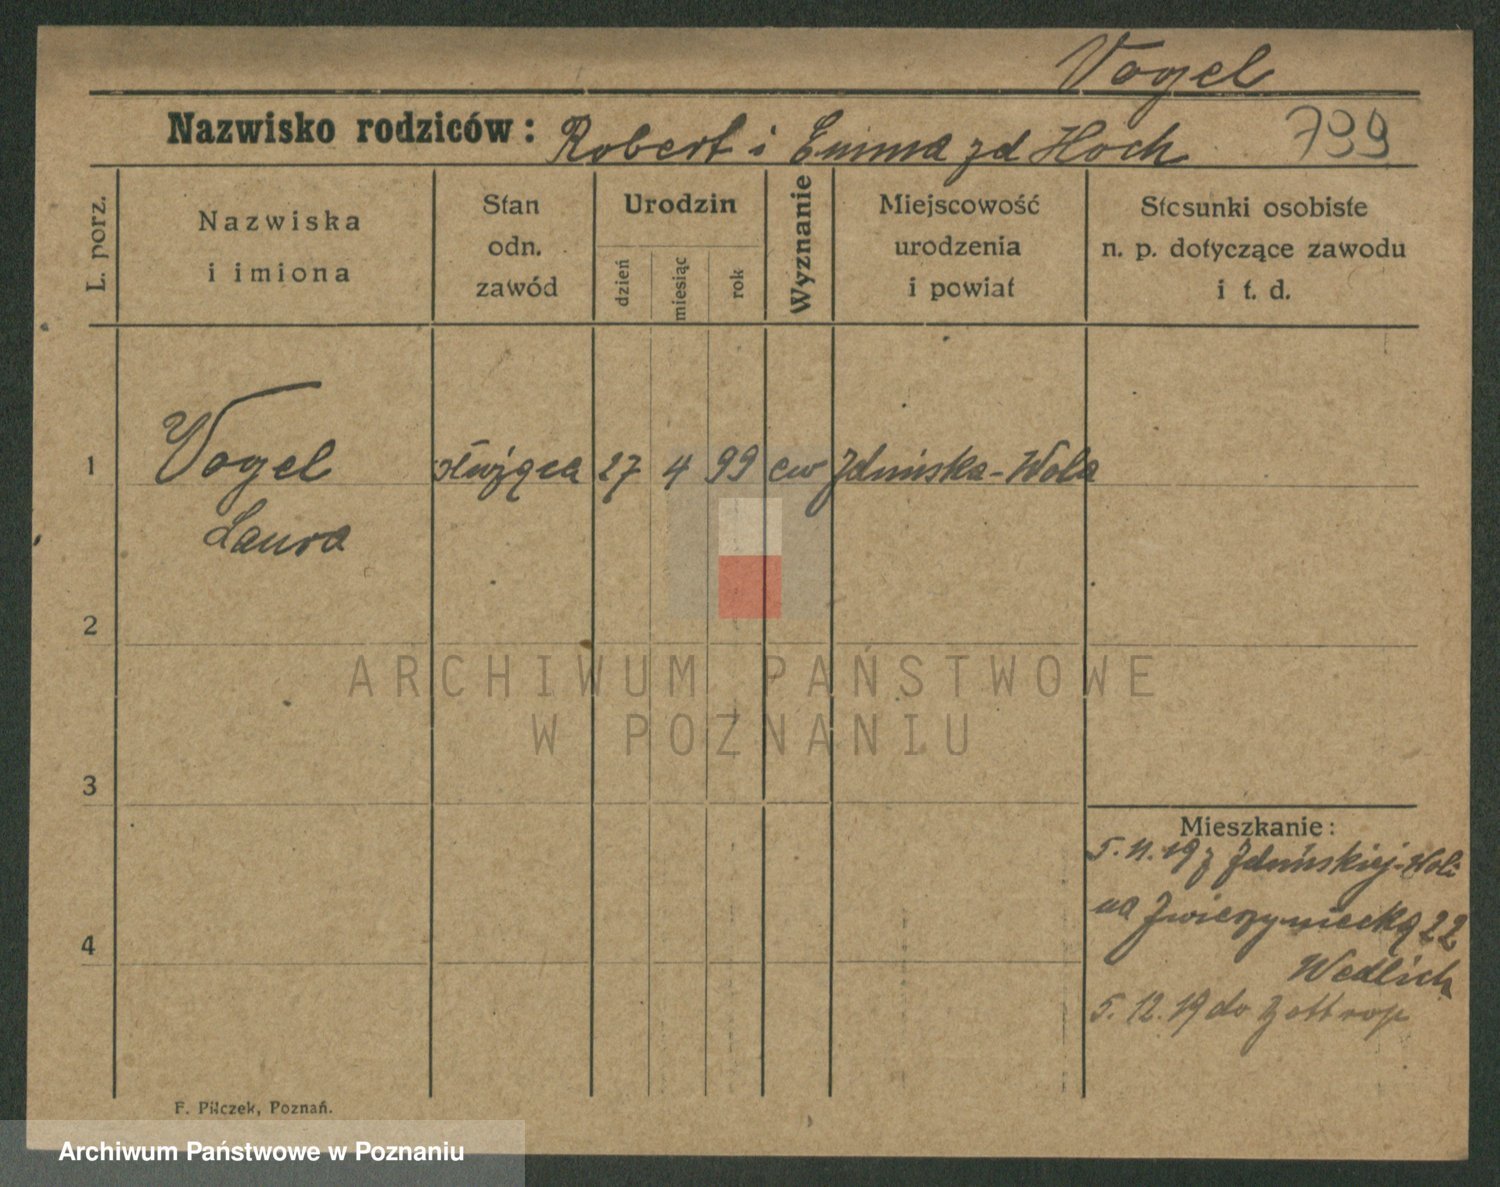 Vogel
Nazwisko rodziców: Robert i Emma zd Hoch 799
L. porz.
Nazwiska
i imiona
Stan
odn.
zawód
Urodzin
dzień
miesiąc
rok
Wyznanie
Miejscowość
urodzenia
i powiat
Stosunki osobiste
n. p. dotyczące zawodu
i t. d.
1 Vogel służąca 27 4 99 ew Zduńska-Wola
Laura
2
ARCHIWUM PAŃSTWOWE
W POZNANIU
3
Mieszkanie:
5.11.19 z Zduńskiej-Woli
na Zwierzyniecką 22
4
Wedlich
5.12.19 do
F. Pilczek, Poznań.
Archiwum Państwowe w Poznaniu